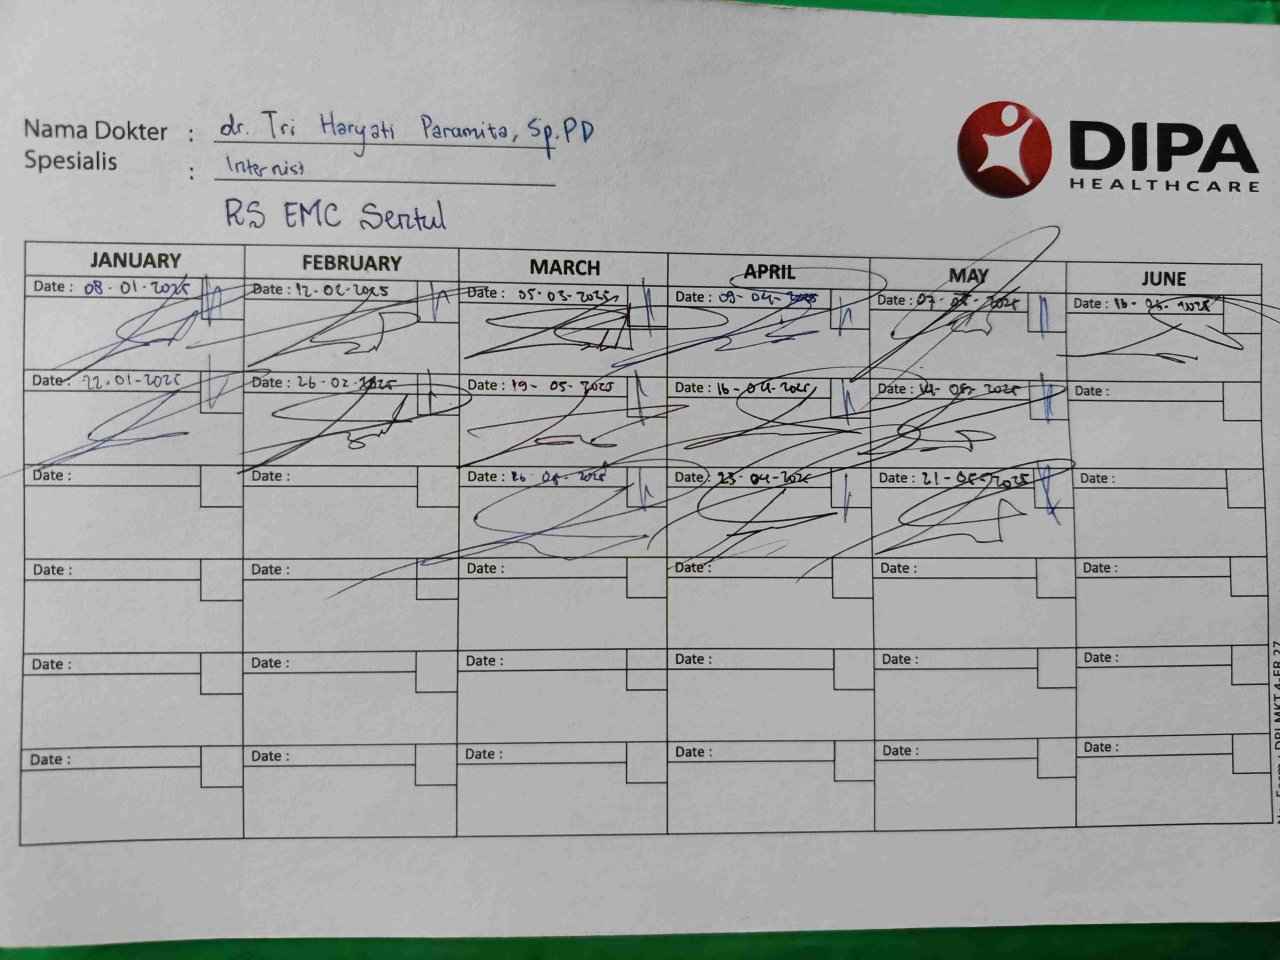 Nama Dokter : dr. Tri Haryati Paramita, Sp.PD
Spesialis : Internist
RS EMC Sentul
DIPA
HEALTHCARE
JANUARY FEBRUARY MARCH APRIL MAY JUNE
Date : 08-01-2025 Date : 12-02-2025 Date : 05-03-2025 Date : 09-04-2025 Date : 07-05-2025 Date :
Date : 22-01-2025 Date : 26-02-2025 Date : 19-05-2025 Date : 16-04-2025 Date : 14-05-2025 Date :
Date : Date : Date : Date : 23-04-2025 Date : 21-05-2025 Date :
Date : Date : Date : Date : Date : Date :
Date : Date : Date : Date : Date : Date :
Date : Date : Date : Date : Date : Date :